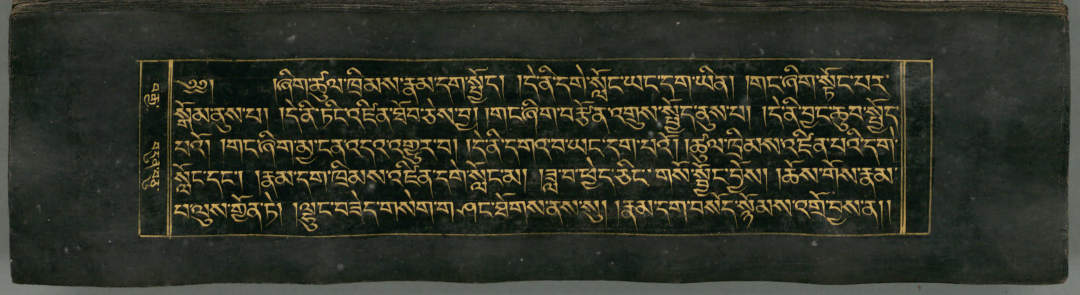 ༄༅། །ཞིག་ཚུལ་ཁྲིམས་རྣམ་དག་སྤྱོད། །དེ་ནི་དགེ་སློང་ཡང་དག་ཡིན། །གང་ཞིག་སྟོང་པར་
སྒོམ་ནུས་པ། །དེ་ནི་ཏིང་འཛིན་ཐོབ་ཅེས་བྱ། །གང་ཞིག་བརྩོན་འགྲུས་སྤྱོད་ནུས་པ། །དེ་ནི་བྱང་ཆུབ་སྤྱོད་
པའོ། །གང་ཞིག་མྱ་ངན་འདའ་འགྱུར་བ། །དེ་ནི་དགའ་བ་ཡང་དག་པའོ། །ཚུལ་ཁྲིམས་འཛིན་པའི་དགེ་
སློང་དང༌། །རྣམ་དག་ཁྲིམས་འཛིན་དགེ་སློང་མ། །ཟླ་བ་ཕྱེད་ཅིང་གསོ་སྦྱོང་བྱོས། །ཆོས་གོས་རྣམ་
པ་ལུས་གྱོན་ཏེ། །ལྷུང་བཟེད་གསེག་ཤང་ཐོགས་ནས་སུ། །རྣམ་དག་བསོད་སྙོམས་འགྲོ་བྱས་ན། །